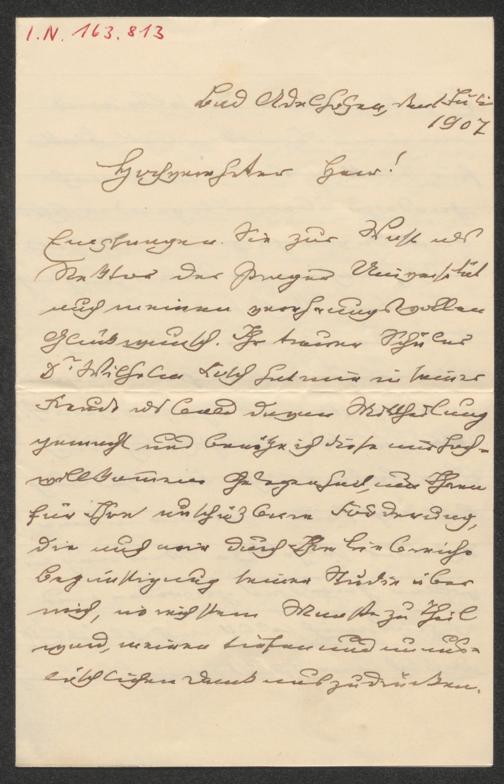 I.N. 163.813
Bad Adelholzen, den Juli
1907
Hochverehrter Herr!
Empfangen Sie zur Wahl als
Rektor der Prager Universität
auch meinen verehrungsvollen
Glückwunsch. Ihr treuer Schüler
Dr. Wilhelm hat mir in seiner
Freude alsbald davon Mittheilung
gemacht und benütze ich diese mir hoch-
willkommene Gelegenheit, um Ihnen
für Ihre unschätzbare Förderung,
die auch mir durch Ihre liebreiche
Begünstigung seiner Studie über
mich, in reichstem Maaße zu Theil
ward, meinen tiefen und unaus-
löschlichen Dank auszudrücken.